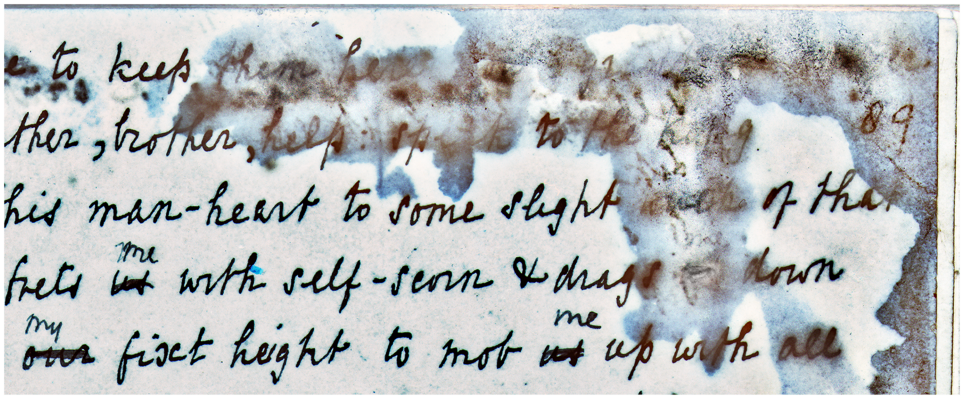 to keep them here
ther, brother, help: speak to the king
his man-heart to some slight of that
me
frets us with self-scorn & drags down
my me
our fixt height to mob us up with all
89